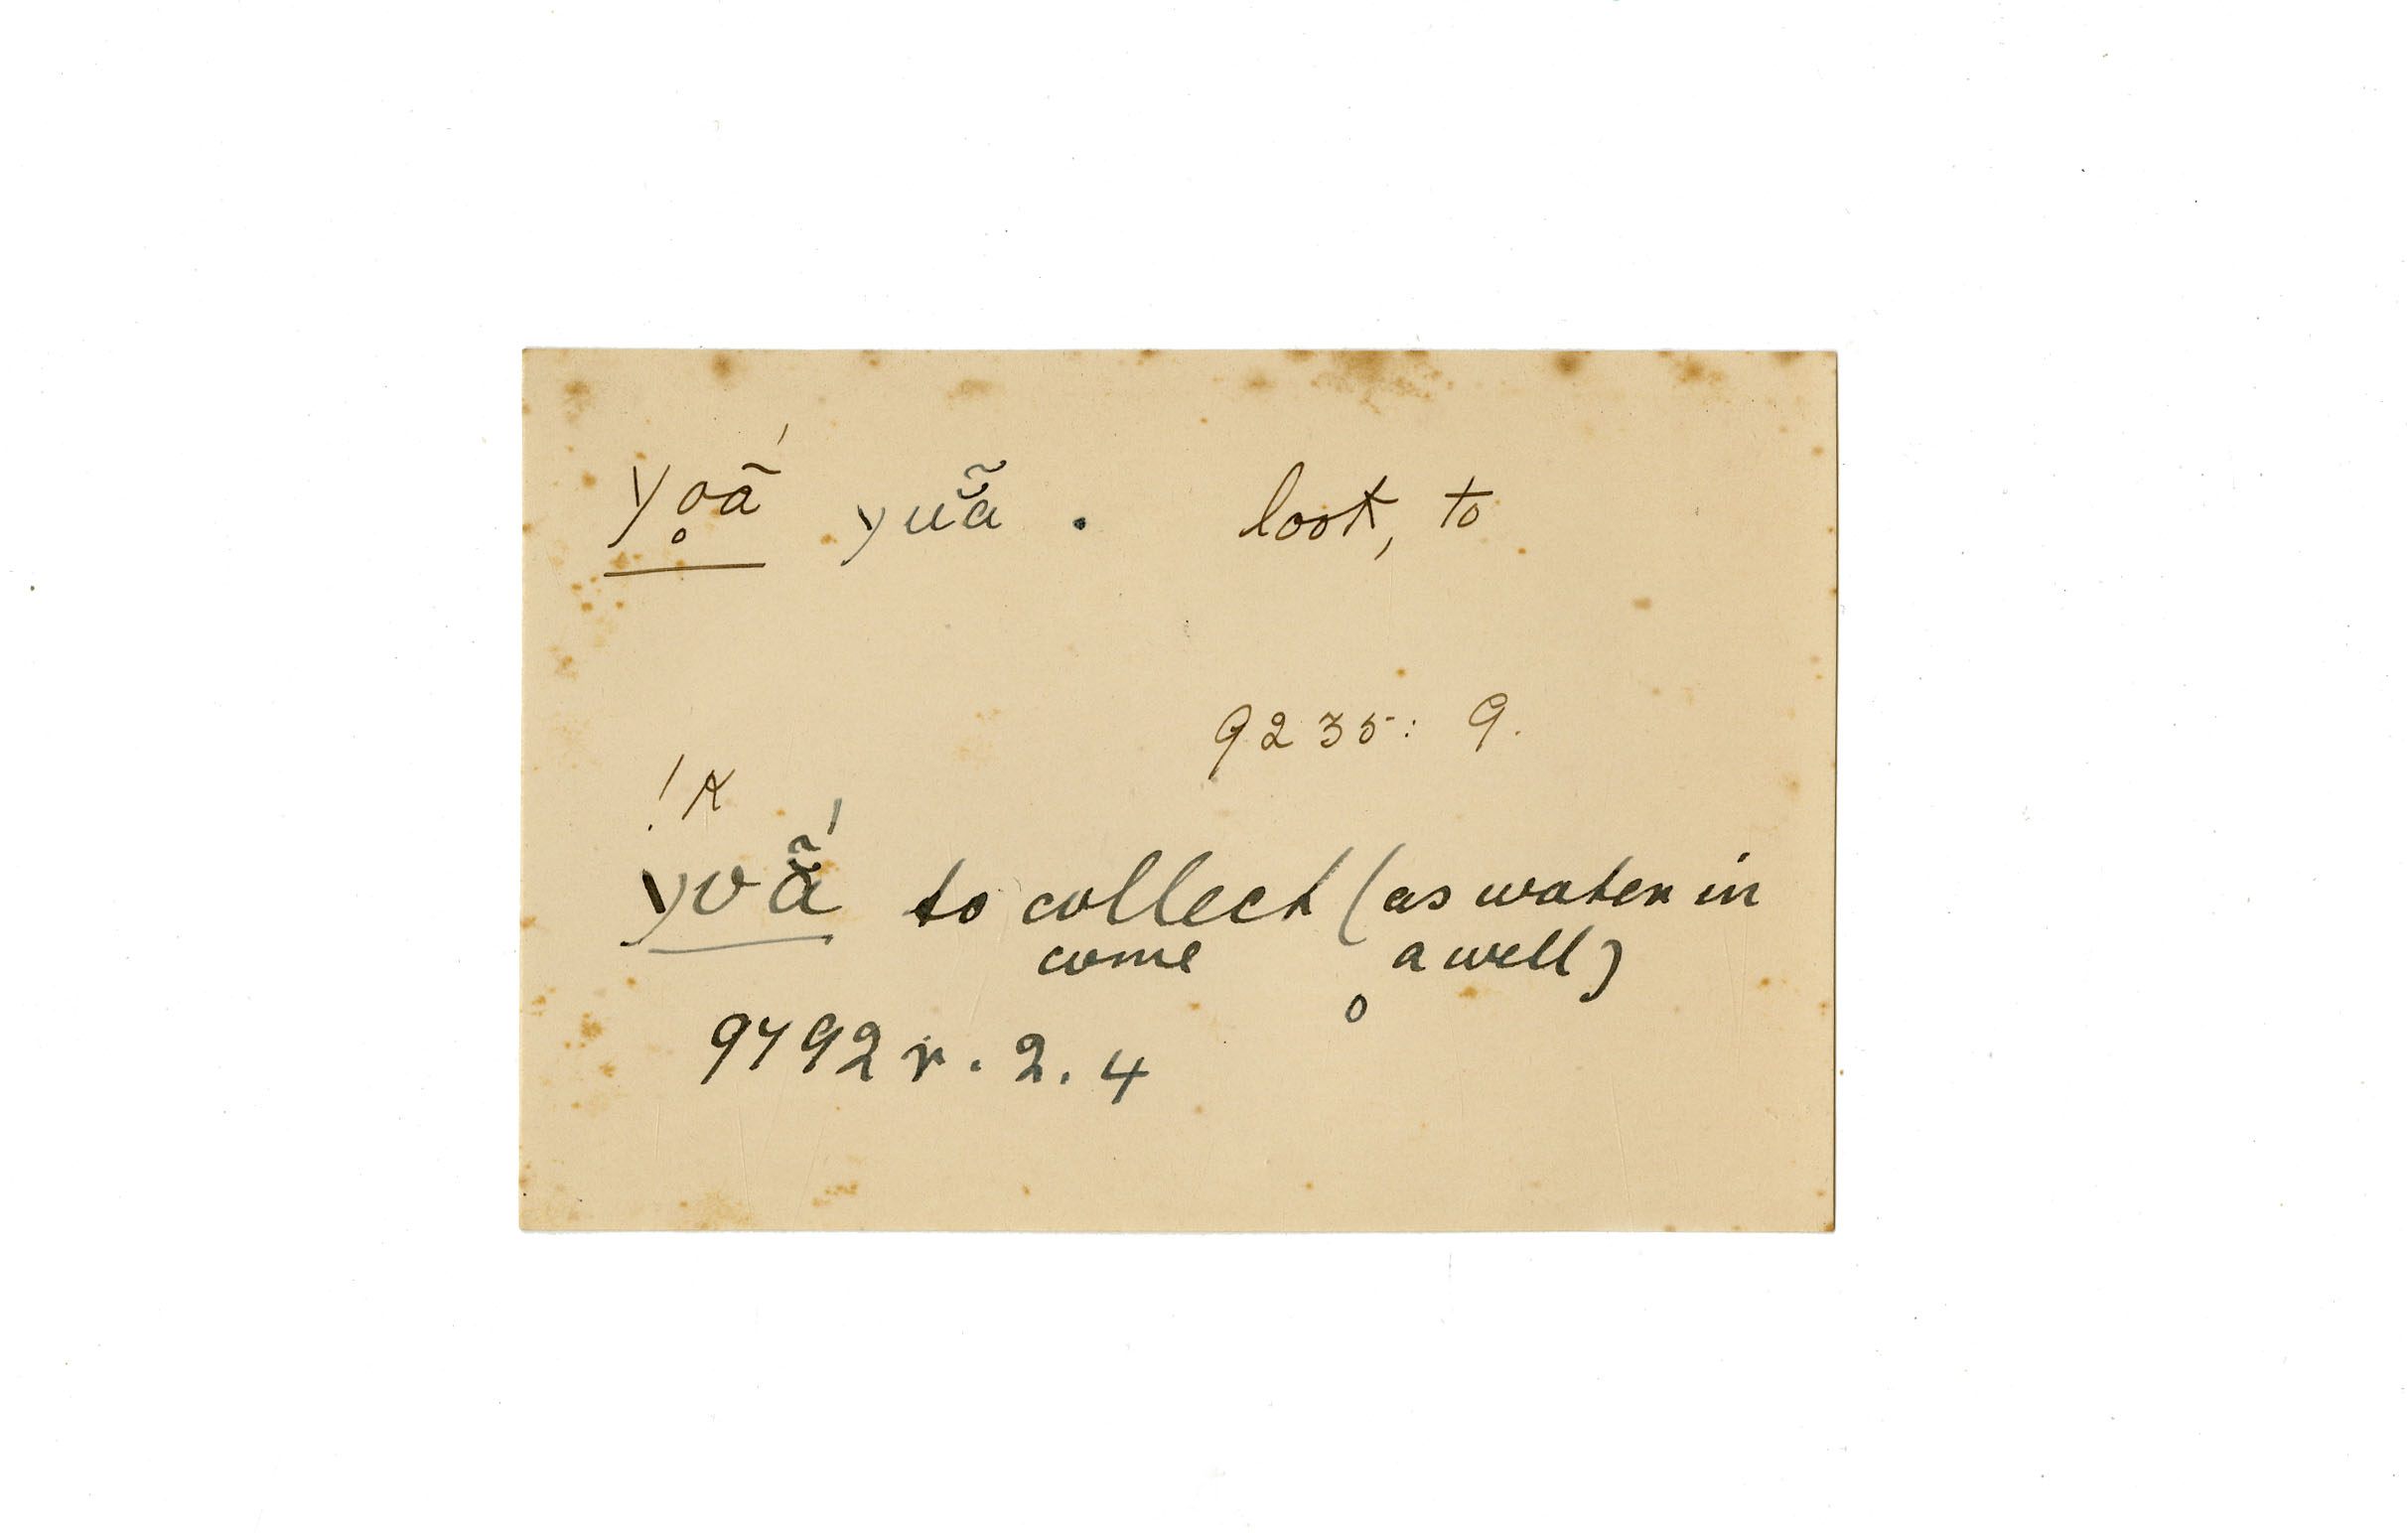 yo̥ã́ yuã̆. loot, to
9235: 9.
!k
yoã̆́ to collect (as water in
come a well)
o
9792 r. 2. 4